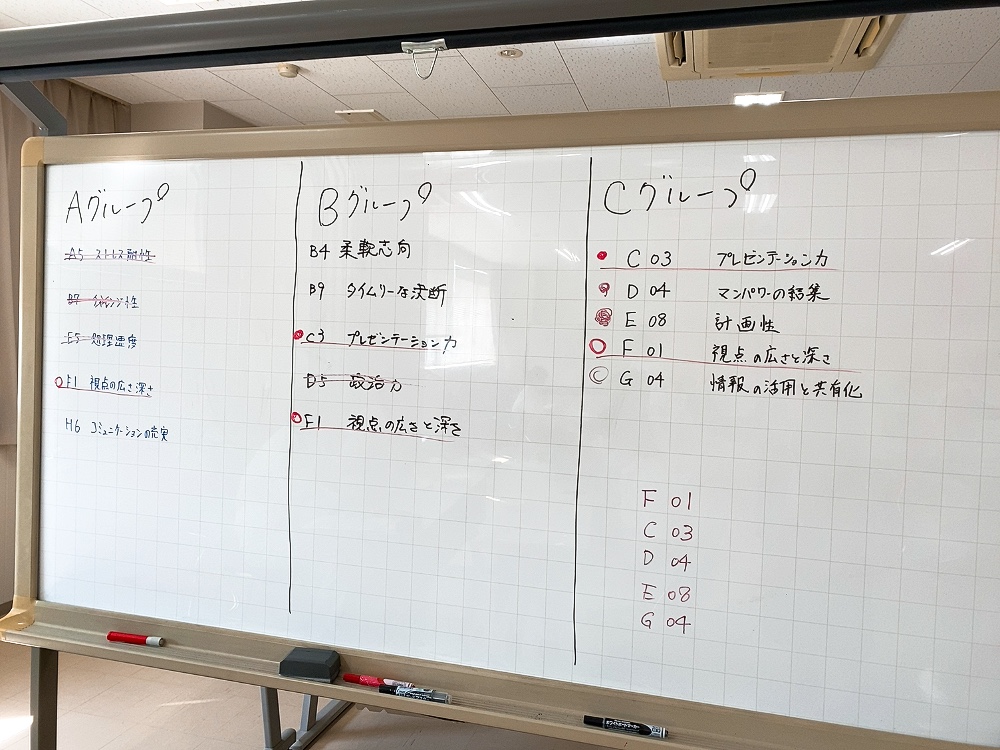 Aグループ
A5 ストレス耐性
B7 性
E5 処理速度
F1 視点の広さ深さ
H6 コミュニケーションの充実
Bグループ
B4 柔軟志向
B9 タイムリーな決断
C3 プレゼンテーション力
D5 政治力
F1 視点の広さと深さ
Cグループ
C 03 プレゼンテーション力
D 04 マンパワーの結集
E 08 計画性
F 01 視点の広さと深さ
G 04 情報の活用と共有化
F 01
C 03
D 04
E 08
G 04
ホワイトボードマーカー